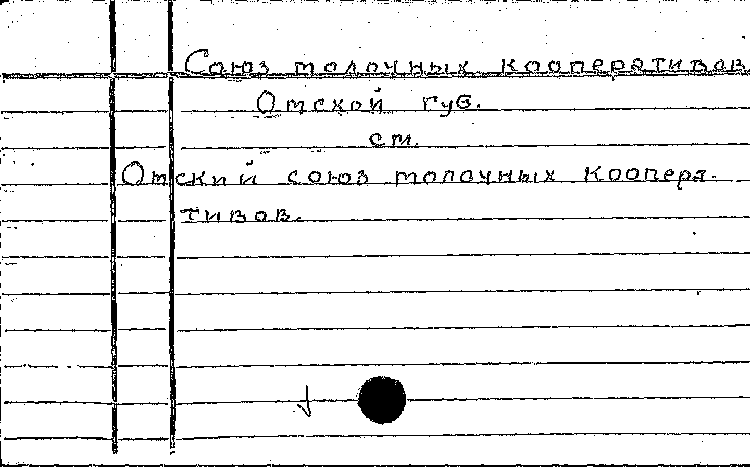 Союз молочных кооперативов
Омской губ.
см.
Омский союз молочных коопера-
тивов.